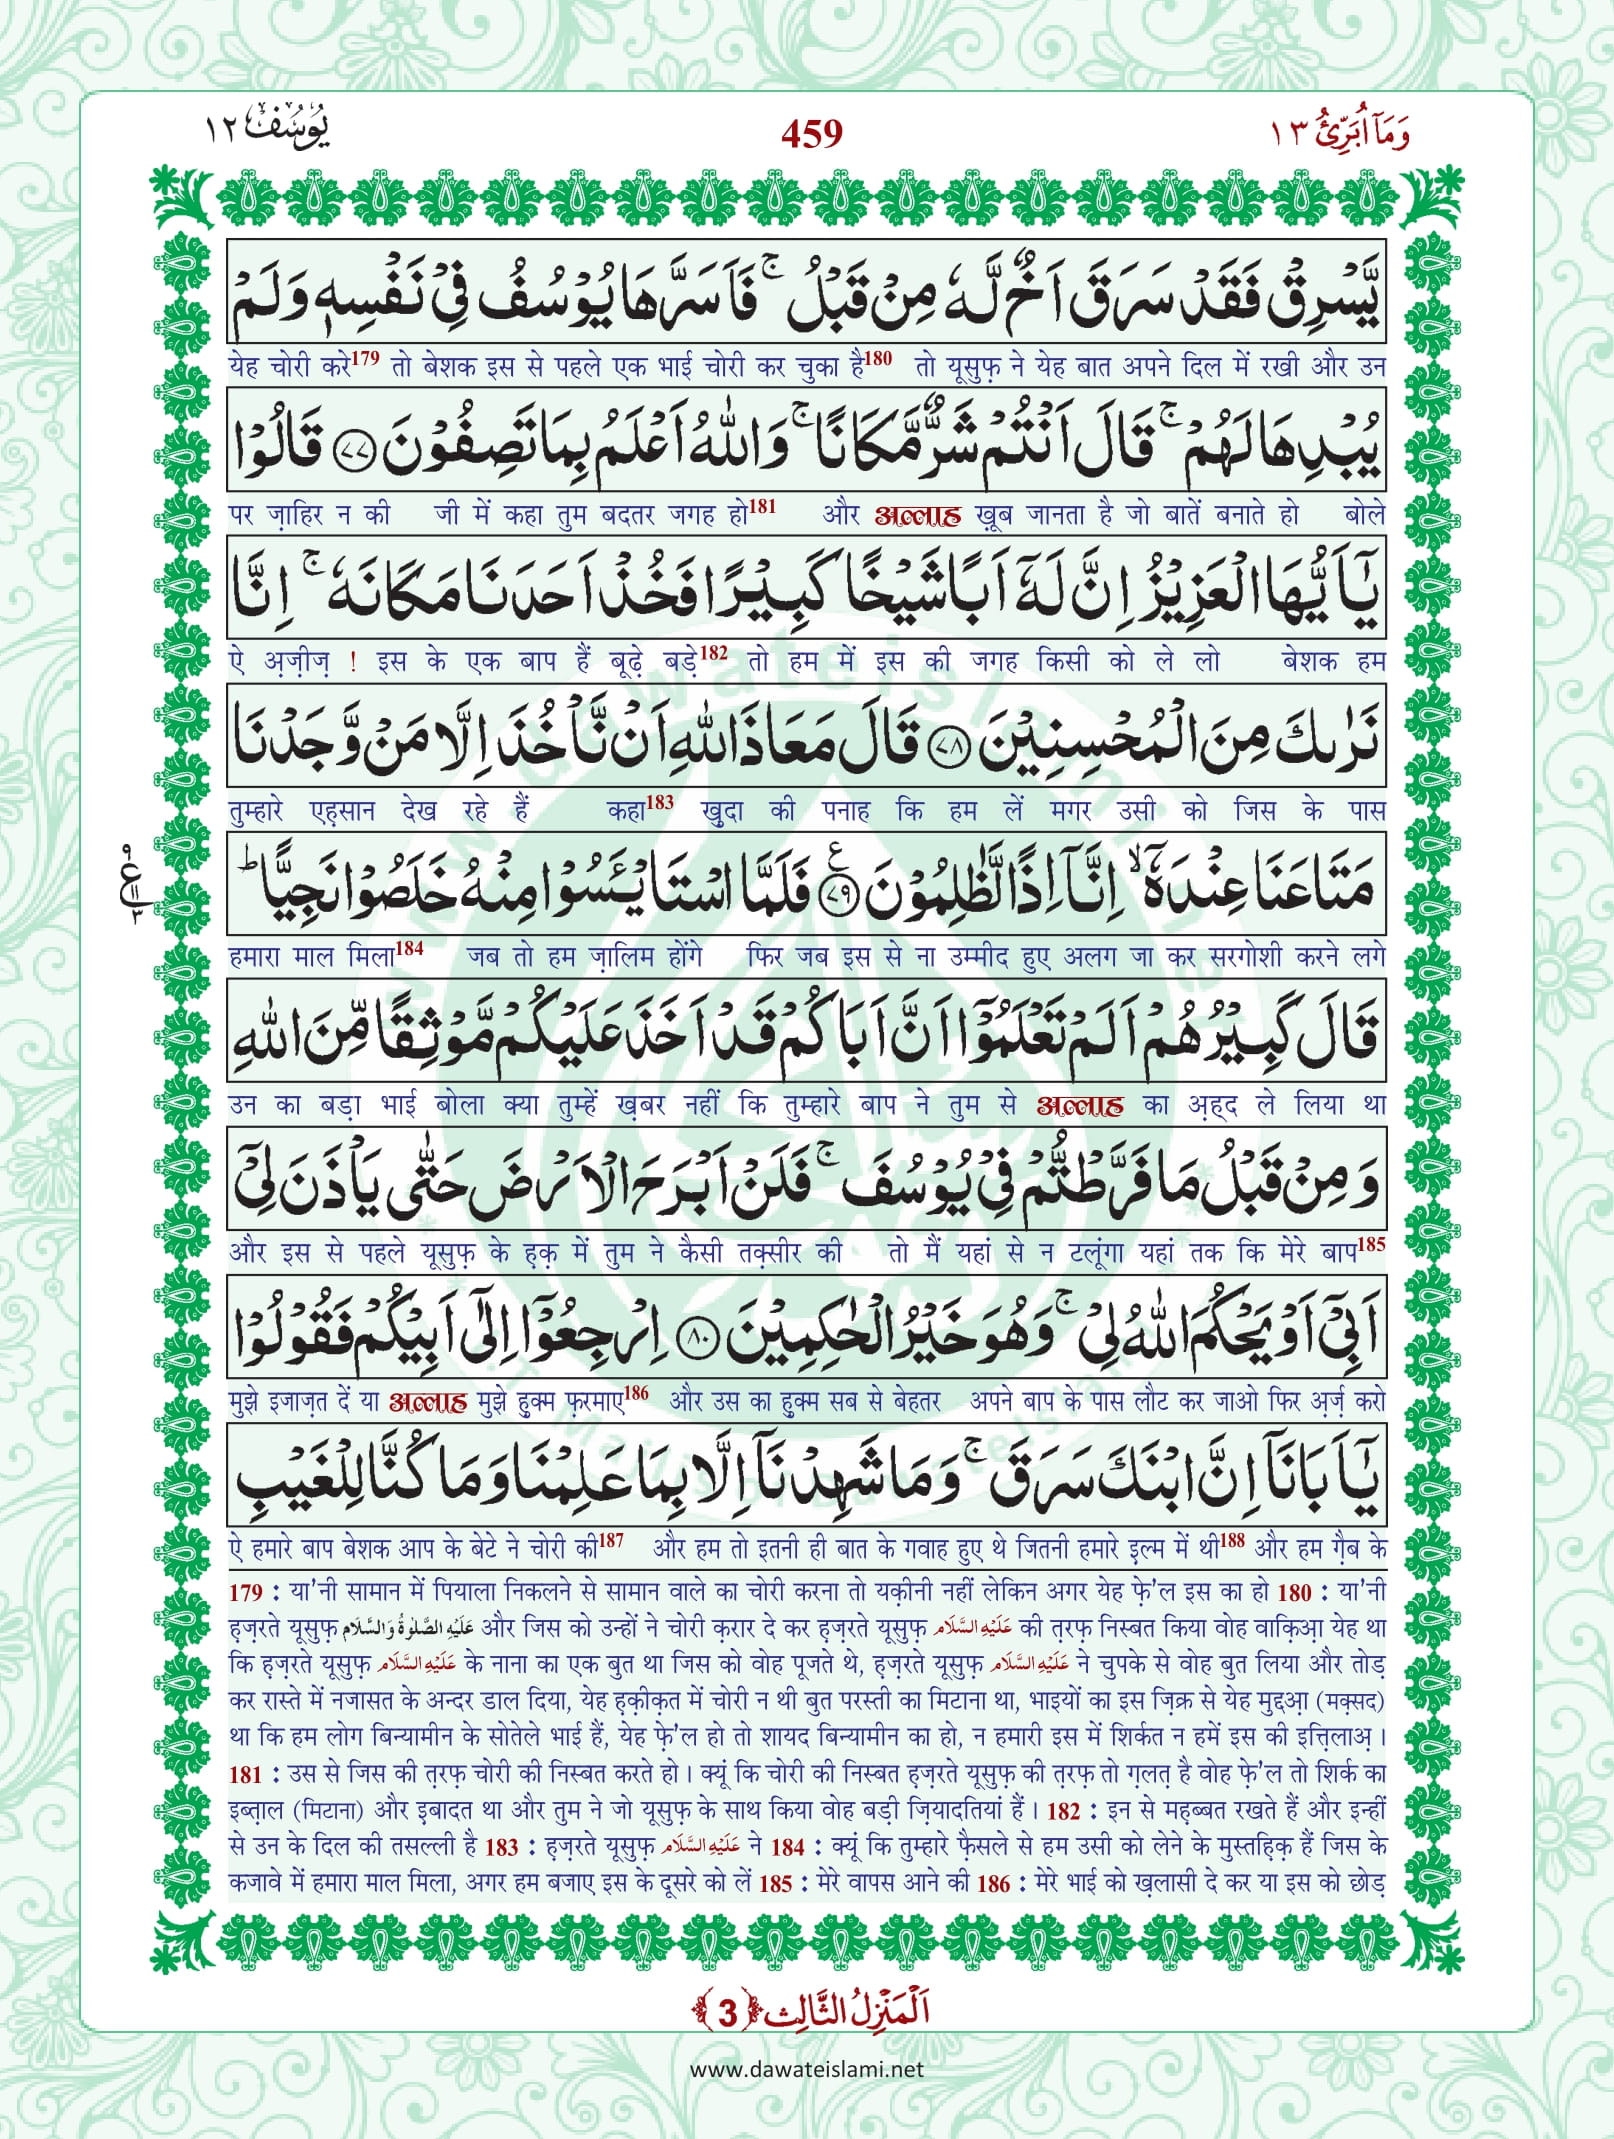 وَمَآ اُبَرِّئُ ١٣
459
يُوْسُف ١٢
يَّسْرِقْ فَقَدْ سَرَقَ اَخٌ لَّهٗ مِنْ قَبْلُ ۚ فَاَسَرَّهَا يُوْسُفُ فِيْ نَفْسِهٖ وَلَمْ
येह चोरी करे179 तो बेशक इस से पहले एक भाई चोरी कर चुका है180 तो यूसुफ़ ने येह बात अपने दिल में रखी और उन
يُبْدِهَا لَهُمْ ۚ قَالَ اَنْتُمْ شَرٌّ مَّكَانًا ۚ وَاللّٰهُ اَعْلَمُ بِمَا تَصِفُوْنَ ﴿٧٧﴾ قَالُوْا
पर ज़ाहिर न की जी में कहा तुम बदतर जगह हो181 और अल्लाह ख़ूब जानता है जो बातें बनाते हो बोले
يٰۤاَيُّهَا الْعَزِيْزُ اِنَّ لَهٗۤ اَبًا شَيْخًا كَبِيْرًا فَخُذْ اَحَدَنَا مَكَانَهٗ ۚ اِنَّا
ऐ अ़ज़ीज़ ! इस के एक बाप हैं बूढ़े बड़े182 तो हम में इस की जगह किसी को ले लो बेशक हम
نَرٰىكَ مِنَ الْمُحْسِنِيْنَ ﴿٧٨﴾ قَالَ مَعَاذَ اللّٰهِ اَنْ نَّاْخُذَ اِلَّا مَنْ وَّجَدْنَا
तुम्हारे एह़सान देख रहे हैं कहा183 खुदा की पनाह कि हम लें मगर उसी को जिस के पास
مَتَاعَنَا عِنْدَهٗۤ ۙ اِنَّاۤ اِذًا لَّظٰلِمُوْنَ ﴿٧٩﴾ۧ فَلَمَّا اسْتَايْـَٔسُوْا مِنْهُ خَلَصُوْا نَجِيًّا ؕ
हमारा माल मिला184 जब तो हम ज़ालिम होंगे फिर जब इस से ना उम्मीद हुए अलग जा कर सरगोशी करने लगे
قَالَ كَبِيْرُهُمْ اَلَمْ تَعْلَمُوْۤا اَنَّ اَبَاكُمْ قَدْ اَخَذَ عَلَيْكُمْ مَّوْثِقًا مِّنَ اللّٰهِ
उन का बड़ा भाई बोला क्या तुम्हें ख़बर नहीं कि तुम्हारे बाप ने तुम से अल्लाह का अ़ह्द ले लिया था
وَمِنْ قَبْلُ مَا فَرَّطْتُّمْ فِيْ يُوْسُفَ ۚ فَلَنْ اَبْرَحَ الْاَرْضَ حَتّٰى يَاْذَنَ لِيْۤ
और इस से पहले यूसुफ़ के ह़क़ में तुम ने कैसी तक़्सीर की तो मैं यहां से न टलूंगा यहां तक कि मेरे बाप185
اَبِيْۤ اَوْ يَحْكُمَ اللّٰهُ لِيْ ۚ وَهُوَ خَيْرُ الْحٰكِمِيْنَ ﴿٨٠﴾ اِرْجِعُوْۤا اِلٰۤى اَبِيْكُمْ فَقُوْلُوْا
मुझे इजाज़त दें या अल्लाह मुझे हुक्म फ़रमाए186 और उस का हुक्म सब से बेहतर अपने बाप के पास लौट कर जाओ फिर अ़र्ज़ करो
يٰۤاَبَانَاۤ اِنَّ ابْنَكَ سَرَقَ ۚ وَمَا شَهِدْنَاۤ اِلَّا بِمَا عَلِمْنَا وَمَا كُنَّا لِلْغَيْبِ
ऐ हमारे बाप बेशक आप के बेटे ने चोरी की187 और हम तो इतनी ही बात के गवाह हुए थे जितनी हमारे इ़ल्म में थी188 और हम ग़ैब के
179 : या'नी सामान में पियाला निकलने से सामान वाले का चोरी करना तो यक़ीनी नहीं लेकिन अगर येह फ़े'ल इस का हो 180 : या'नी
ह़ज़रते यूसुफ़ عَلَيْهِ الصَّلٰوةُ وَالسَّلَام और जिस को उन्हों ने चोरी क़रार दे कर ह़ज़रते यूसुफ़ عَلَيْهِ السَّلَام की त़रफ़ निस्बत किया वोह वाक़िआ़ येह था
कि ह़ज़रते यूसुफ़ عَلَيْهِ السَّلَام के नाना का एक बुत था जिस को वोह पूजते थे, ह़ज़रते यूसुफ़ عَلَيْهِ السَّلَام ने चुपके से वोह बुत लिया और तोड़
कर रास्ते में नजासत के अन्दर डाल दिया, येह ह़क़ीक़त में चोरी न थी बुत परस्ती का मिटाना था, भाइयों का इस ज़िक्र से येह मुद्दआ़ (मक़्सद)
था कि हम लोग बिन्यामीन के सोतेले भाई हैं, येह फ़े'ल हो तो शायद बिन्यामीन का हो, न हमारी इस में शिर्कत न हमें इस की इत्तिलाअ़ ।
181 : उस से जिस की त़रफ़ चोरी की निस्बत करते हो । क्यूं कि चोरी की निस्बत ह़ज़रते यूसुफ़ की त़रफ़ तो ग़लत़ है वोह फ़े'ल तो शिर्क का
इब्त़ाल (मिटाना) और इ़बादत था और तुम ने जो यूसुफ़ के साथ किया वोह बड़ी ज़ियादतियां हैं । 182 : इन से मह़ब्बत रखते हैं और इन्हीं
से उन के दिल की तसल्ली है 183 : ह़ज़रते यूसुफ़ عَلَيْهِ السَّلَام ने 184 : क्यूं कि तुम्हारे फ़ैसले से हम उसी को लेने के मुस्तह़िक़ हैं जिस के
कजावे में हमारा माल मिला, अगर हम बजाए इस के दूसरे को लें 185 : मेरे वापस आने की 186 : मेरे भाई को ख़लासी दे कर या इस को छोड़
اَلْمَنْزِلُ الثَّالِث ﴿3﴾
www.dawateislami.net